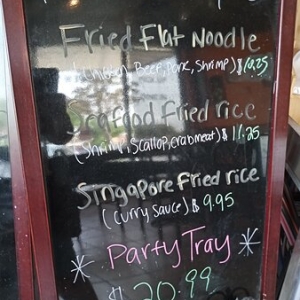 Fried Flat Noodle
(Chicken, Beef, Pork, Shrimp) $10.25
Seafood Fried rice
(Shrimp, Scallop, crabmeat) $11.25
Singapore Fried rice
(Curry Sauce) $9.95
Party Tray
$20.99